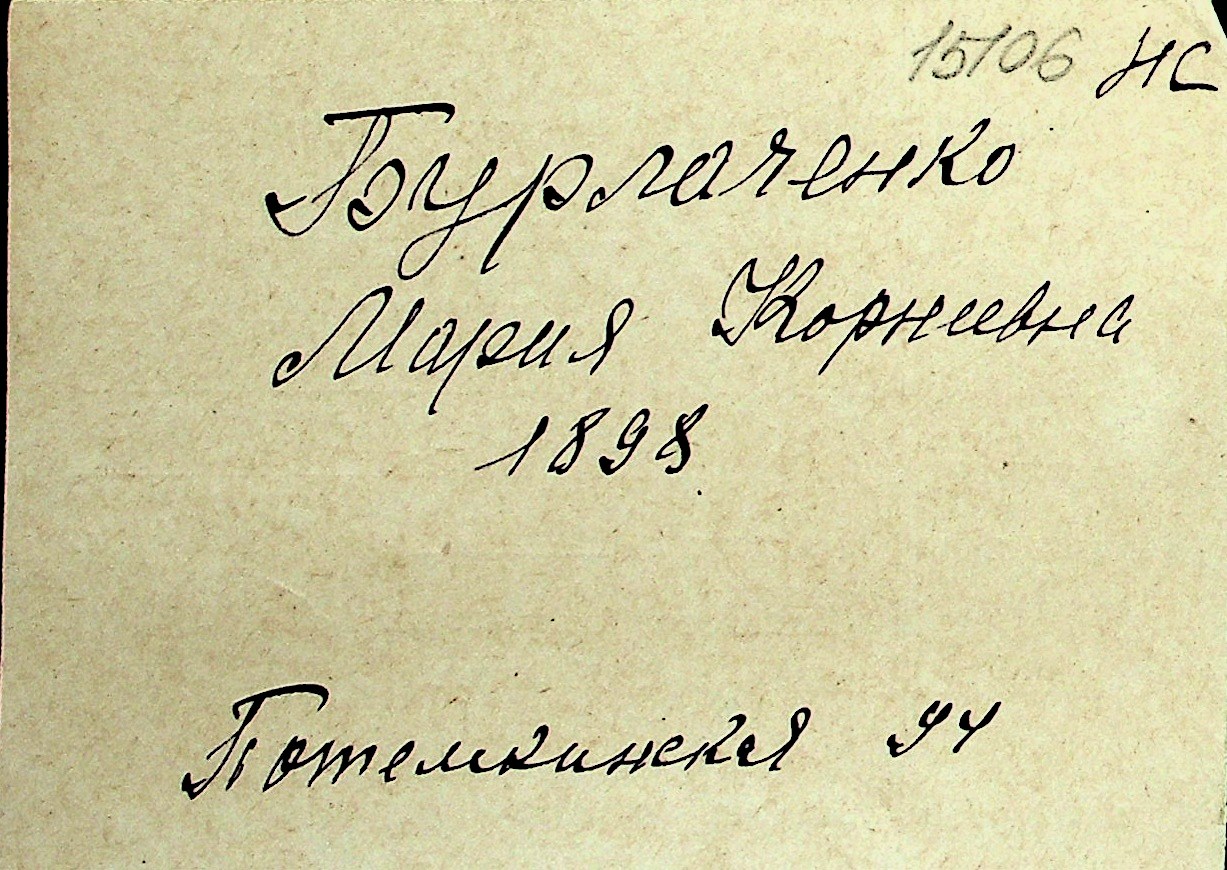 15106 НС
Бурлаченко
Мария Корнеевна
1898
Потемкинская 94